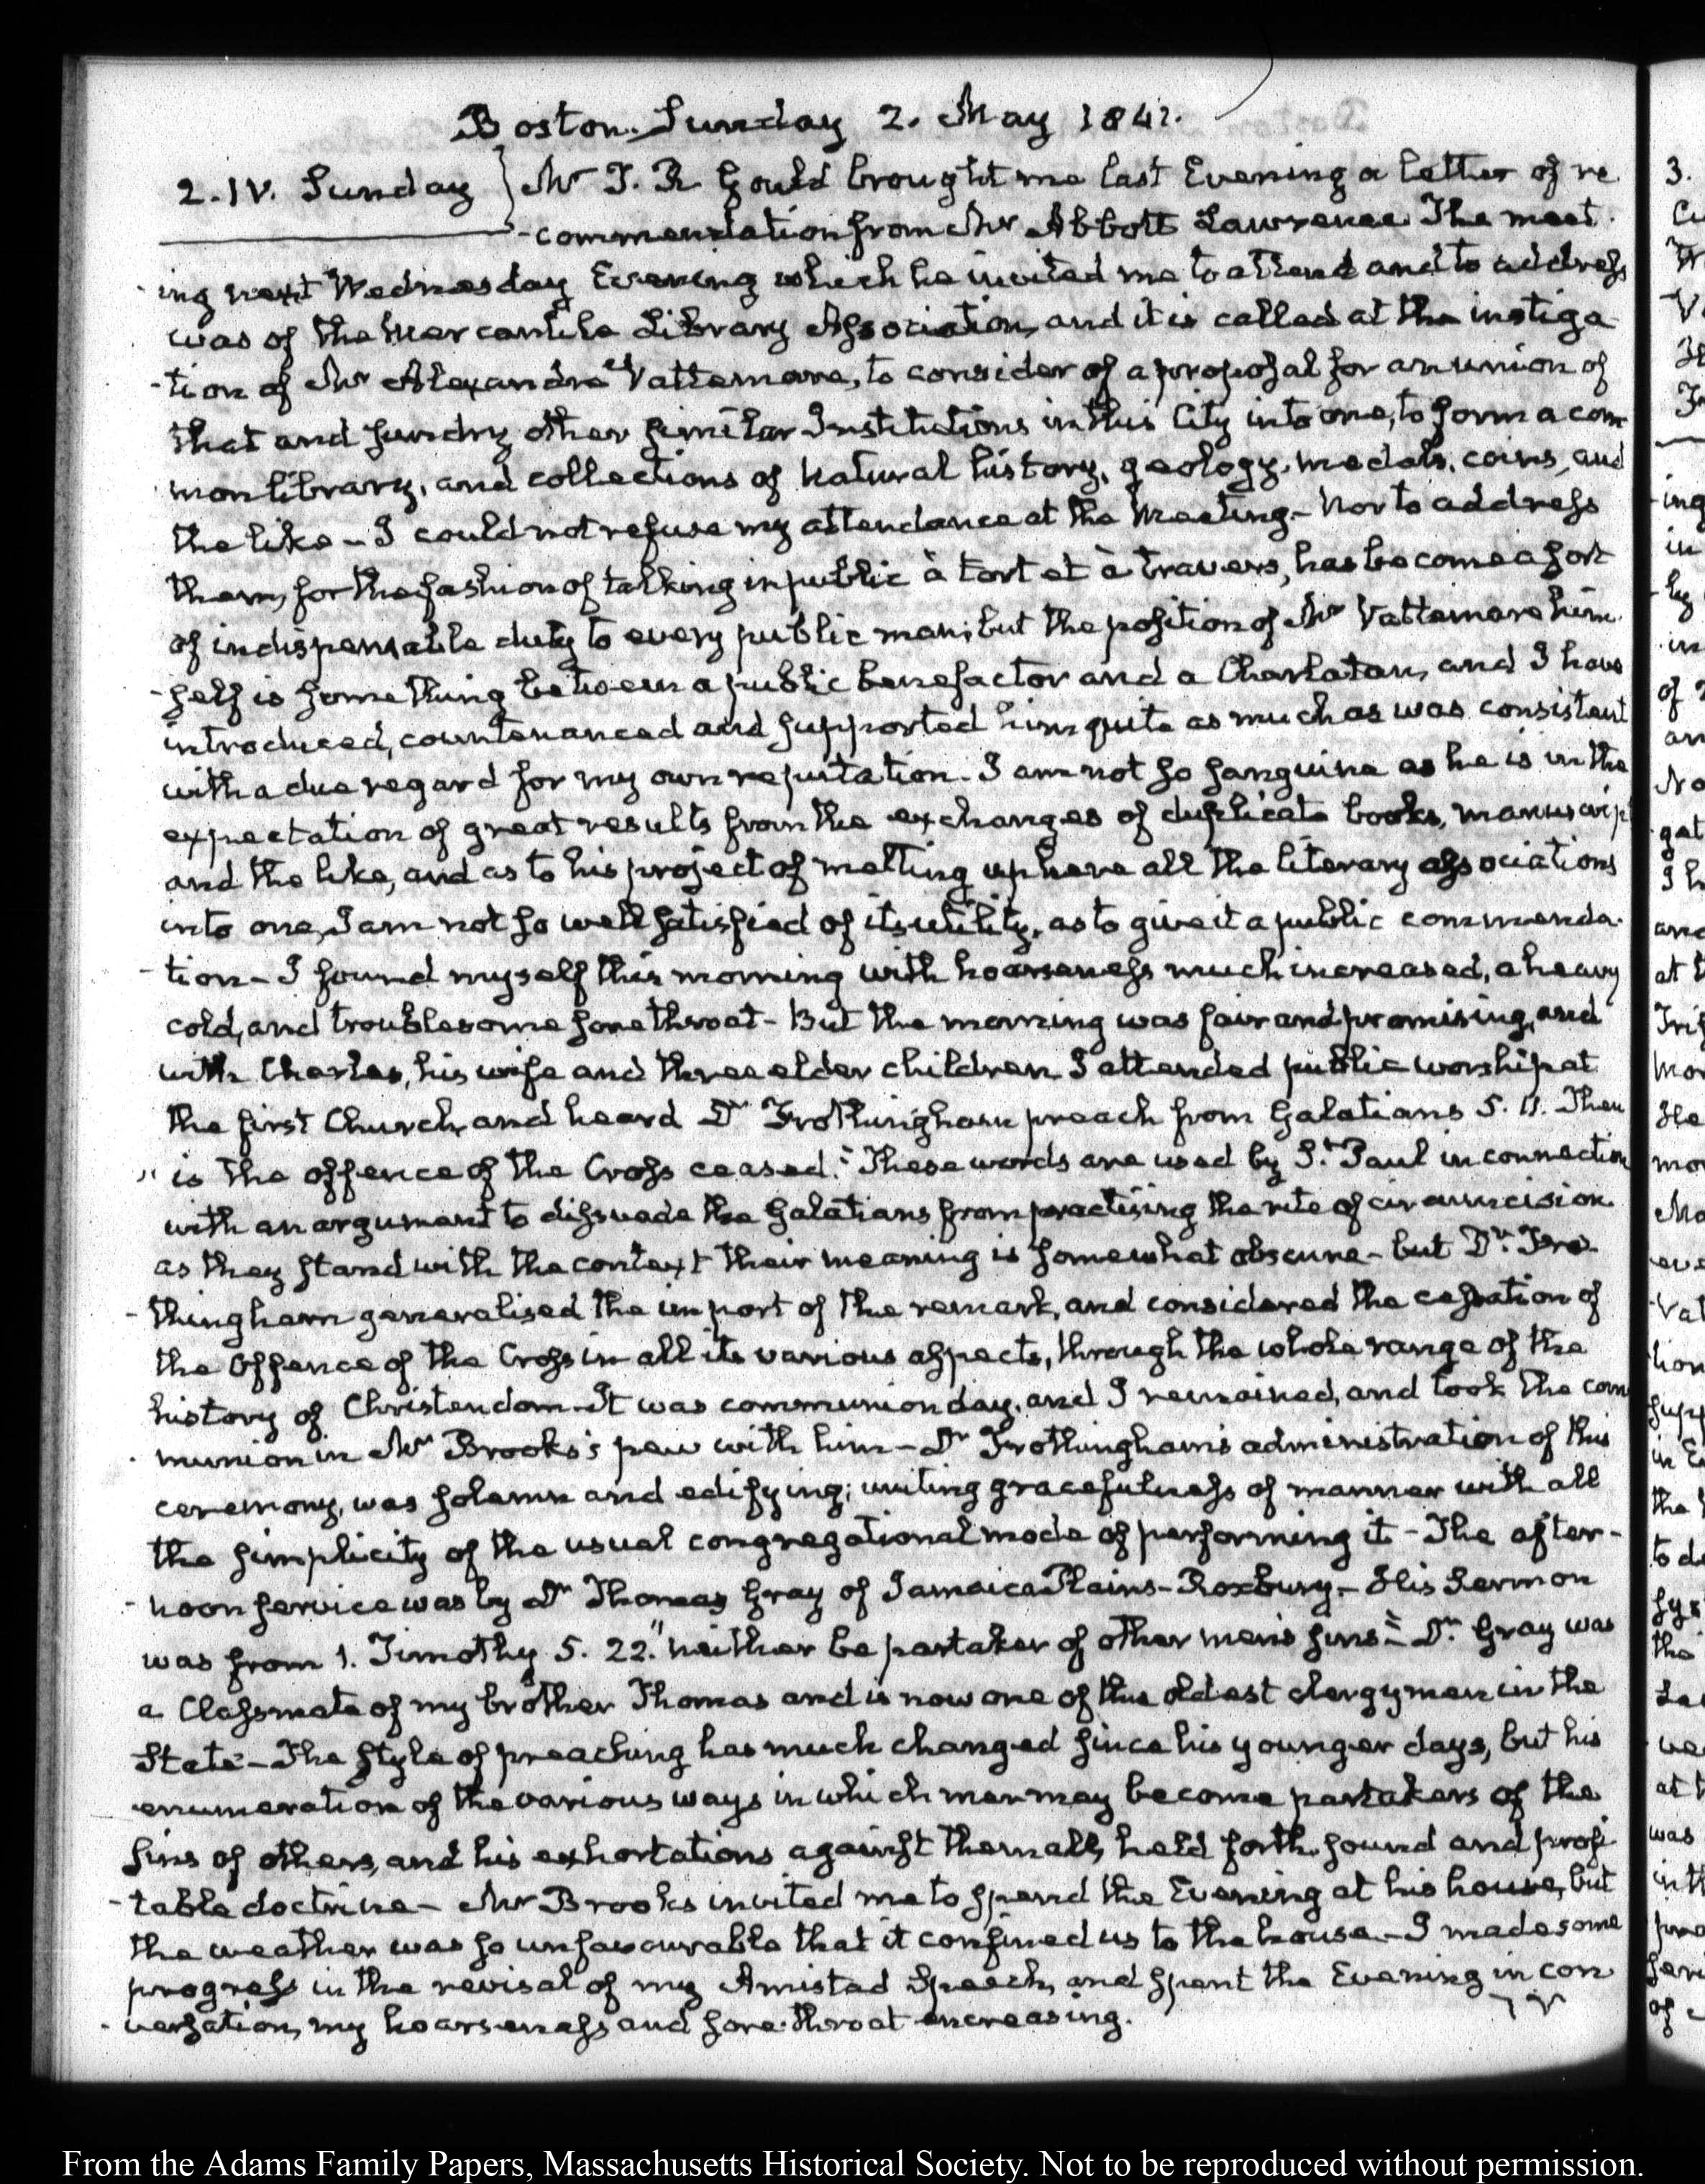 Boston. Sunday 2. May 1841.
2. IV. Sunday } Mr T. R. Gould brought me last Evening a letter of re
-commendation from Mr Abbott Lawrence. The meet
-ing next Wednesday Evening which he invited me to attend and to address
was of the Mercantile Library Association, and it is called at the instiga
-tion of Mr Alexandre Vattemare, to consider of a proposal for an union of
that and sundry other similar Institutions in this City into one, to form a com
mon library, and collections of natural history, geology, medals, coins, and
the like - I could not refuse my attendance at the Meeting - Nor to address
them, for the fashion of talking in public à tort et à travers, has become a sort
of indispensable duty to every public man; but the position of Mr Vattemare him
-self is something between a public benefactor and a Charlatan, and I have
introduced, countenanced and supported him quite as much as was consistent
with a due regard for my own reputation. I am not so sanguine as he is in the
expectation of great results from the exchanges of duplicate books, manuscrip
and the like, and as to his project of melting up here all the literary associations
into one, I am not so well satisfied of its utility, as to give it a public commenda
-tion - I found myself this morning with hoarseness much increased, a heavy
cold, and troublesome sore throat - But the morning was fair and promising, and
with Charles, his wife and three elder children I attended public worship at
the first Church, and heard Dr Frothingham preach from Galatians 5. 11. Then
"is the offence of the Cross ceased." These words are used by St. Paul in connection
with an argument to dissuade the Galatians from practising the rite of circumcision
as they stand with the context their meaning is somewhat obscure - but Dr. Fro-
-thingham generalised the import of the remark, and considered the cessation of
the Offence of the Cross in all its various aspects, through the whole range of the
history of Christendom. It was communion day, and I remained, and took the com
-munion in Mr Brooks's pew with him - Dr Frothingham's administration of this
ceremony, was solemn and edifying; uniting gracefulness of manner with all
the simplicity of the usual congregational mode of performing it - The after-
-noon service was by Dr Thomas Gray of Jamaica Plains - Roxbury - His Sermon
was from 1. Timothy 5. 22. "neither be partaker of other men's sins" - Dr. Gray was
a Classmate of my brother Thomas and is now one of the oldest clergymen in the
State - The style of preaching has much changed since his younger days, but his
enumeration of the various ways in which men may become partakers of the
sins of others, and his exhortations against them all, held forth sound and profi
-table doctrine - Mr Brooks invited me to spend the Evening at his house, but
the weather was so unfavourable that it confined us to the house - I made some
progress in the revisal of my Amistad Speech, and spent the Evening in con
-versation, my hoarseness and sore throat increasing.
From the Adams Family Papers, Massachusetts Historical Society. Not to be reproduced without permission.